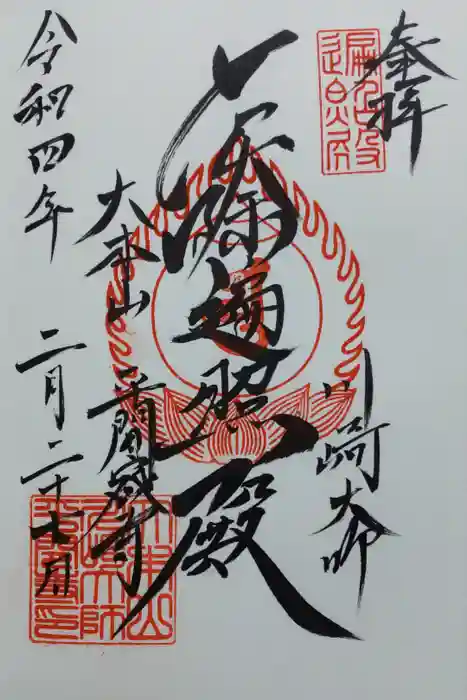 奉拝
川崎大師
厄除遍照殿
大本山
平間寺
令和四年
二月二十七日